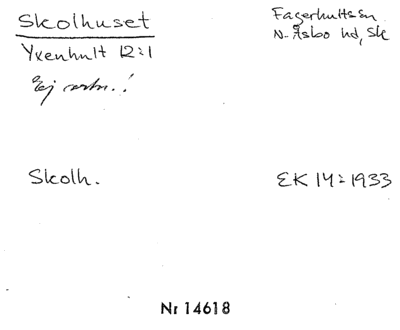 Skolhuset
Fagerhultssn
Yxenhult 12:1
N. Åsbo hd, Sk
Ej
Skolh.
EK 14:1933
Nr 14618